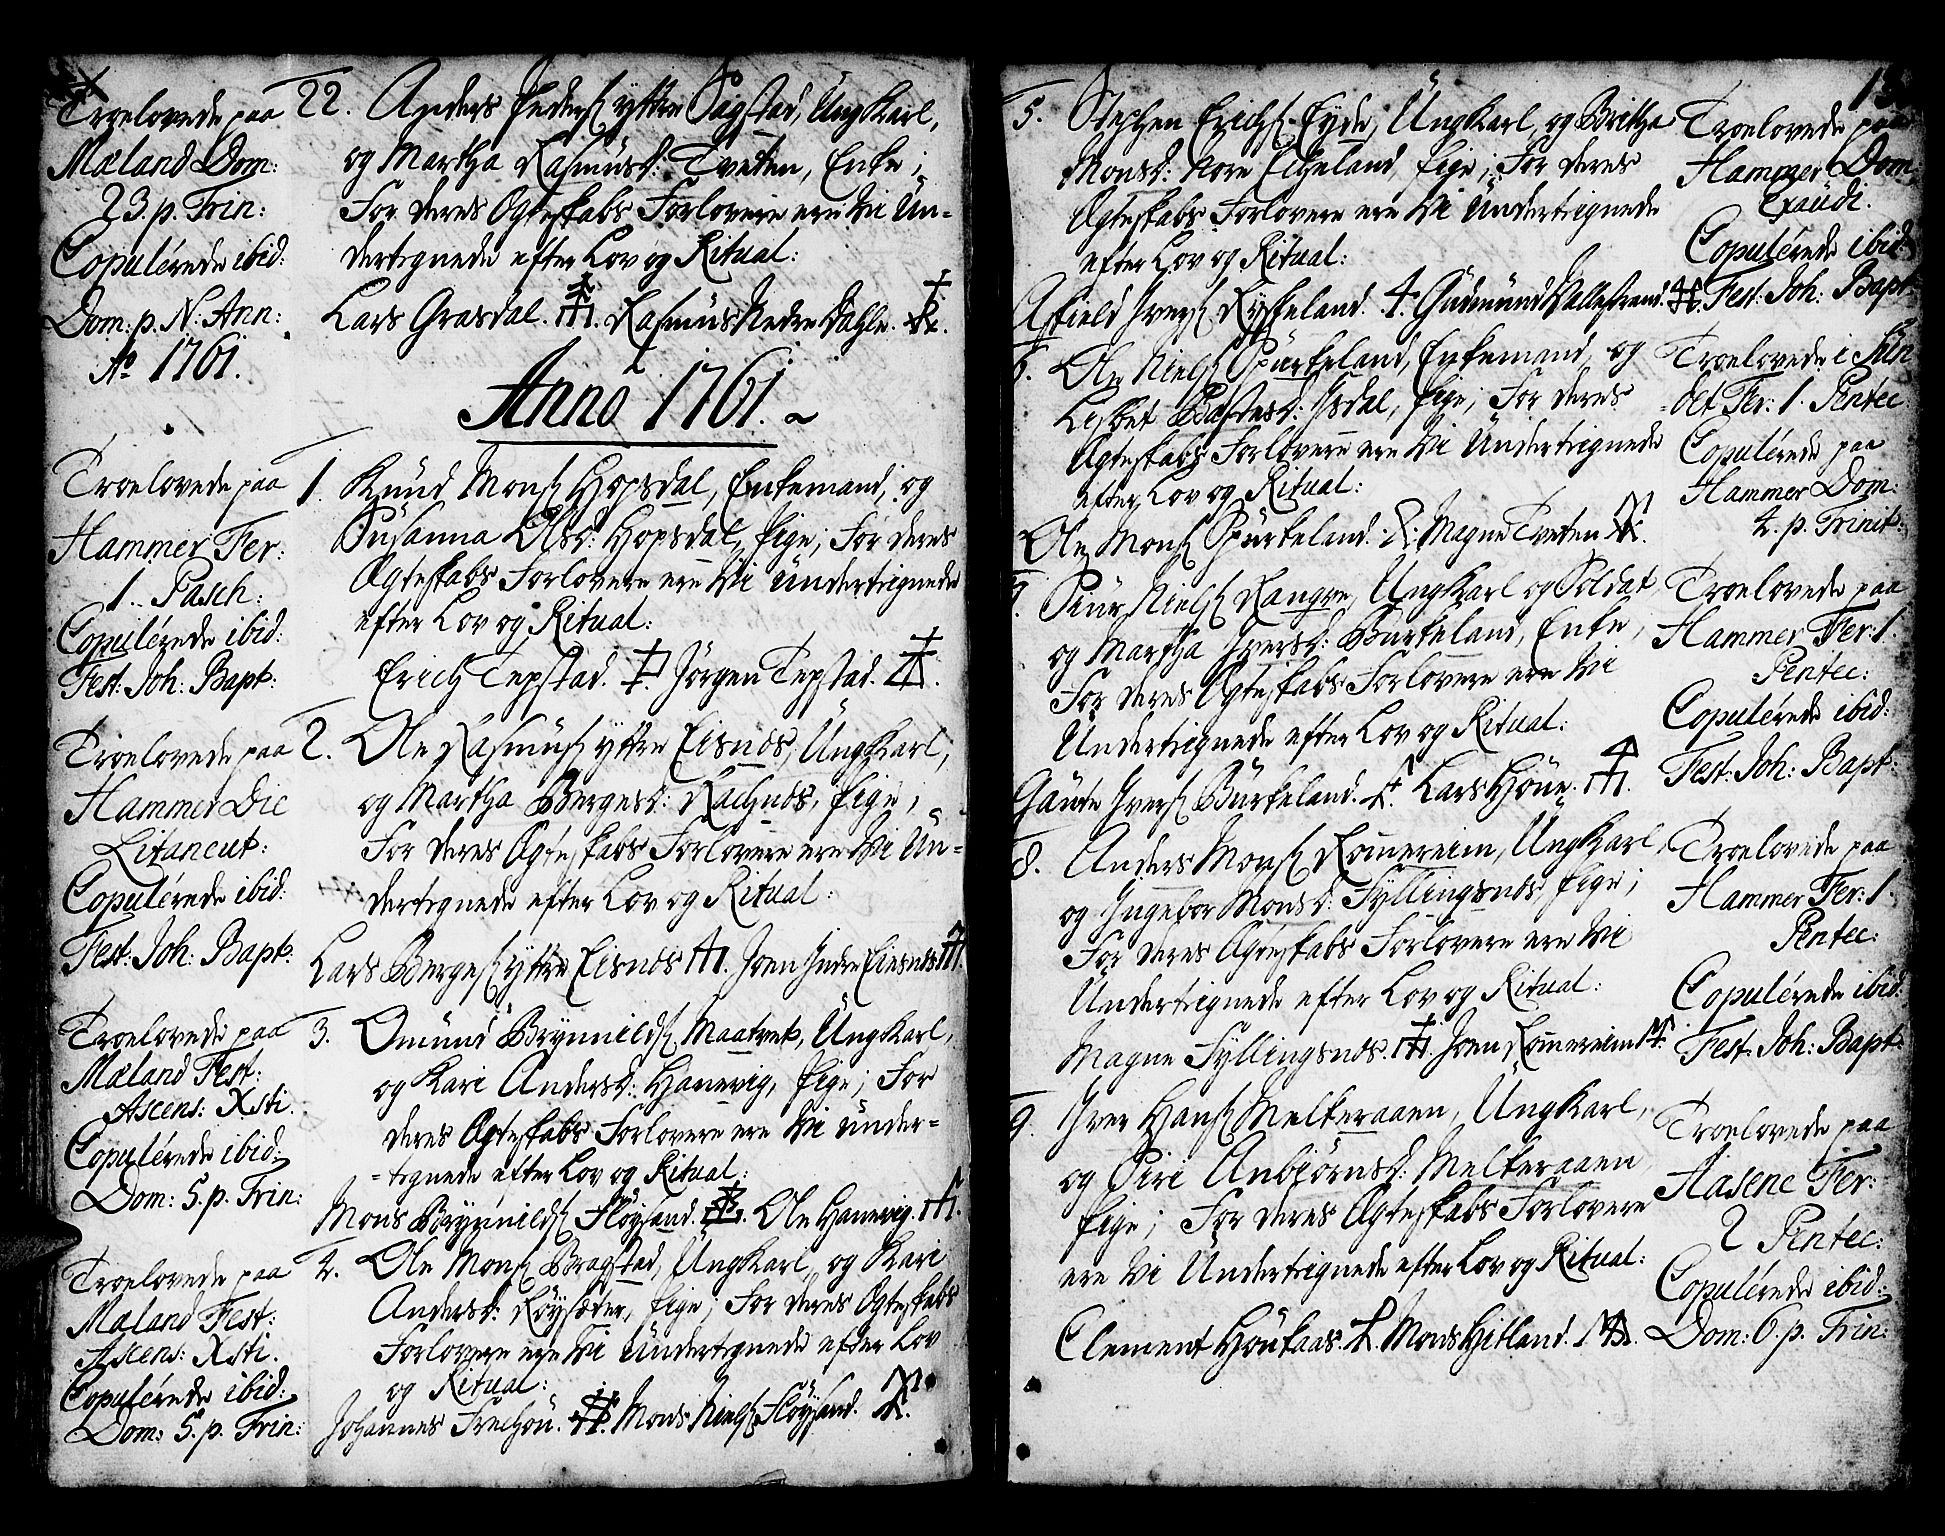 Troelovede paa
Mæland Dom:
23. p. Trin:
Copulérede ibid:
Dom: p. N: Ann:
Ao 1761.
22. Anders Peders. yttre Sagstad, Ung Karl,
og Martha Rasmusd: Tveten, Enke;
For deres Ægteskabs Forlovere ere Vi Un-
dertegnede efter Lov og Ritual:
Lars Grasdal. Rasmus Nedre Dahle.
Anno 1761.
Troelovede paa
Hammer Fer:
1. Pasch:
Copulérede ibid:
Fest: Joh: Bapt:
1. Knud Mons. Hopsdal, Enkemand, og
Susanna Olsd: Hopsdal, Pige; For deres
Ægteskabs Forlovere ere Vi Undertegnede
efter Lov og Ritual:
Erich Tepstad. Jörgen Tepstad.
Troelovede paa
Hammer Die
Litaneut:
Copulérede ibid:
Fest: Joh: Bapt:
2. Ole Rasmus. yttre Eisnos, Ung Karl,
og Martha Bergesd: Rachnos, Pige;
For deres Ægteskabs Forlovere ere Vi Un-
dertegnede efter Lov og Ritual:
Lars Berges. yttre Eisnos. Joen Indre Eiesnos
Troelovede paa
Mæland Fest:
Ascens: Xsti.
Copulérede ibid:
Dom: 5. p. Trin:
3. Omund Brynnilds. Maatvet, Ung Karl,
og Kari Andersd: Hanevig, Pige; For
deres Ægteskabs Forlovere ere Vi Under-
=tegnede efter Lov og Ritual:
Mons Brynnilds. Flöysand. Ole Hanevig.
Troelovede paa
Mæland Fest:
Ascens: Xsti.
Copulérede ibid:
Dom: 5. p. Trin:
4. Ole Mons. Bragstad, Ung Karl, og Kari
Andersd: Röysæter, Pige; For deres Ægteskabs
Forlovere ere Vi Undertegnede efter Lov
og Ritual:
Johannes Frechou. Mons Niels. Flöysand.
5. Stephen Erichs. Eyde, Ung Karl, og Brittha
Monsd: Nore Echeland, Pige; For deres
Ægteskabs Forlovere ere Vi Undertegnede
efter Lov og Ritual:
Askield Ivers. Ryskeland. Gudmund Vallestrand.
Troelovede paa
Hammer Dom.
Exaudi.
Copulérede ibid:
Fest: Joh: Bapt
6. Ole Niels. Spurkeland, Enkemand, og
Lisbet Isdal, Pige; For deres
Ægteskabs Forlovere ere Vi Undertegnede
efter Lov og Ritual:
Ole Mons. Spurkeland. Magne Tveten
Troelovede i
Fer: 1. Pentec
Copulérede paa
Hammer Dom:
4. p. Trinit:
7. Siur Niels. Rangve, Ung Karl og Soldat,
og Martha Iversd: Burkeland, Enke,
For deres Ægteskabs Forlovere ere Vi
Undertegnede efter Lov og Ritual:
Gaute Ivers. Burkeland. Lars Höue.
Troelovede paa
Hammer Fer: 1.
Pentec:
Copulérede ibid:
Fest: Joh: Bapt:
8. Anders Mons. Romereim, Ung Karl,
og Ingebor Monsd: Syllingsnos Pige;
For deres Ægteskabs Forlovere ere Vi
Undertegnede efter Lov og Ritual:
Magne Syllingsnos. Joen Romereim
Troelovede paa
Hammer Fer: 1.
Pentec:
Copulérede ibid:
Fest: Joh: Bapt:
9. Iver Hans. Melkeraaen, Ung Karl,
og Siri Anbjörnsd: Melkeraaen
Pige; For deres Ægteskabs Forlovere
ere Vi Undertegnede efter Lov og Ritual:
Clement Höukaas. Mons Hitland.
Troelovede paa
Aasene Fer:
2 Pentec:
Copulérede ibid:
Dom: 6. p. Trin: